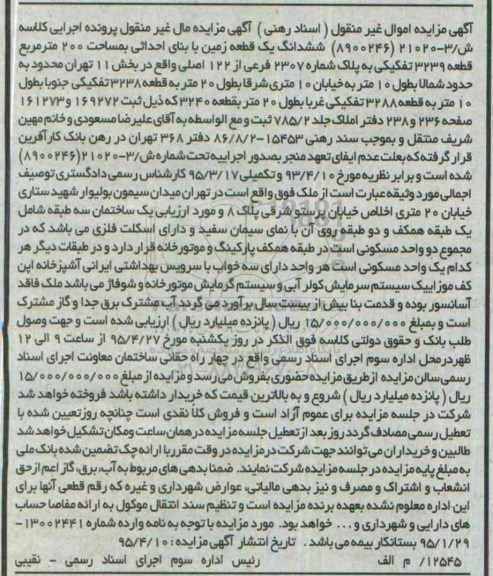 آگهی مزایده اموال غیر منقول ( اسناد رهنی ) آگهی مزایده مال غیر منقول پرونده اجرایی کلاسه
ش/۳-۲۱۰۲۰ (۸۹۰۰۲۴۶) ششدانگ یک قطعه زمین با بنای احداثی بمساحت ۲۰۰ مترمربع
قطعه ۳۲۳۹ تفکیکی به پلاک شماره ۲۳۰۷ فرعی از ۱۲۲ اصلی واقع در بخش ۱۱ تهران محدود به
حدود شمالا بطول ۱۰ متر به خیابان ۱۰ متری شرقا بطول ۲۰ متر به قطعه ۳۲۳۸ تفکیکی جنوبا بطول
۱۰ متر به قطعه ۳۲۸۸ تفکیکی غربا بطول ۲۰ متر بقطعه ۳۲۴۰ که ذیل ثبت ۱۶۹۲۷۲ و ۱۶۱۲۷۳
صفحه ۲۳۶ و ۲۳۸ دفتر املاک جلد ۷۸۵/۲ ثبت و مع الواسطه به آقای علیرضا مسعودی و خانم مهین
شریف منتقل و بموجب سند رهنی ۱۵۴۵۳-۸۶/۸/۲ دفتر ۳۶۸ تهران در رهن بانک کارآفرین
قرار گرفته که بعلت عدم ایفای تعهد منجر بصدور اجراییه تحت شماره ش/۳-۲۱۰۲۰(۸۹۰۰۲۴۶)
شده است و برابر نظریه مورخ ۹۳/۴/۱۰ و تکمیلی ۹۵/۳/۱۷ کارشناس رسمی دادگستری توصیف
اجمالی مورد وثیقه عبارت است از ملک فوق واقع است در تهران میدان سیمون بولیوار شهید ستاری
خیابان ۲۰ متری اخلاص خیابان پرستو شرقی پلاک ۸ و مورد ارزیابی یک ساختمان سه طبقه شامل
یک طبقه همکف و دو طبقه روی آن با نمای سیمان سفید و دارای اسکلت فلزی می باشد که در
مجموع دو واحد مسکونی است در طبقه همکف پارکینگ و موتورخانه قرار دارد و در طبقات دیگر هر
کدام یک واحد مسکونی است هر واحد دارای سه خواب با سرویس بهداشتی ایرانی آشپزخانه اپن
کف موزاییک سیستم سرمایش کولر آبی و سیستم گرمایش موتورخانه و شوفاژ می باشد ملک فاقد
آسانسور بوده و قدمت بنا بیش از بیست سال برآورد می گردد آب مشترک برق جدا و گاز مشترک
است و بمبلغ ۱۵/۰۰۰/۰۰۰/۰۰۰ ریال ( پانزده میلیارد ریال ) ارزیابی شده است و جهت وصول
طلب بانک و حقوق دولتی کلاسه فوق الذکر در روز یکشنبه مورخ ۹۵/۴/۲۷ از ساعت ۹ الی ۱۲
ظهر در محل اداره سوم اجرای اسناد رسمی واقع در چهار راه حقانی ساختمان معاونت اجرای اسناد
رسمی سالن مزایده از طریق مزایده حضوری بفروش می رسد و مزایده از مبلغ ۱۵/۰۰۰/۰۰۰/۰۰۰
ریال ( پانزده میلیارد ریال ) شروع و به بالاترین قیمت که خریدار داشته باشد فروخته خواهد شد
شرکت در جلسه مزایده برای عموم آزاد است و فروش کلاً نقدی است چنانچه روز تعیین شده با
تعطیل رسمی مصادف گردد روز بعد از تعطیل جلسه مزایده در همان ساعت و مکان تشکیل خواهد شد
طالبین و خریداران می توانند جهت شرکت در مزایده در وقت مقرر با ارائه چک تضمین شده بانک ملی
به مبلغ پایه مزایده در جلسه مزایده شرکت نمایند. ضمنا بدهی های مربوط به آب، برق، گاز اعم از حق
انشعاب و اشتراک و مصرف و نیز بدهی مالیاتی، عوارض شهرداری و غیره که رقم قطعی آنها برای
این اداره معلوم نشده بعهده برنده مزایده است و تنظیم سند انتقال موکول به ارائه مفاصا حساب
های دارایی و شهرداری و ... خواهد بود. مورد مزایده با توجه به نامه وارده شماره ۱۳۰۰۲۴۴۱-
۹۵/۱/۲۹ بستانکار بیمه می باشد. تاریخ انتشار آگهی مزایده: ۹۵/۴/۱۰
۱۲۵۴۵/ م الف رئیس اداره سوم اجرای اسناد رسمی - نقیبی